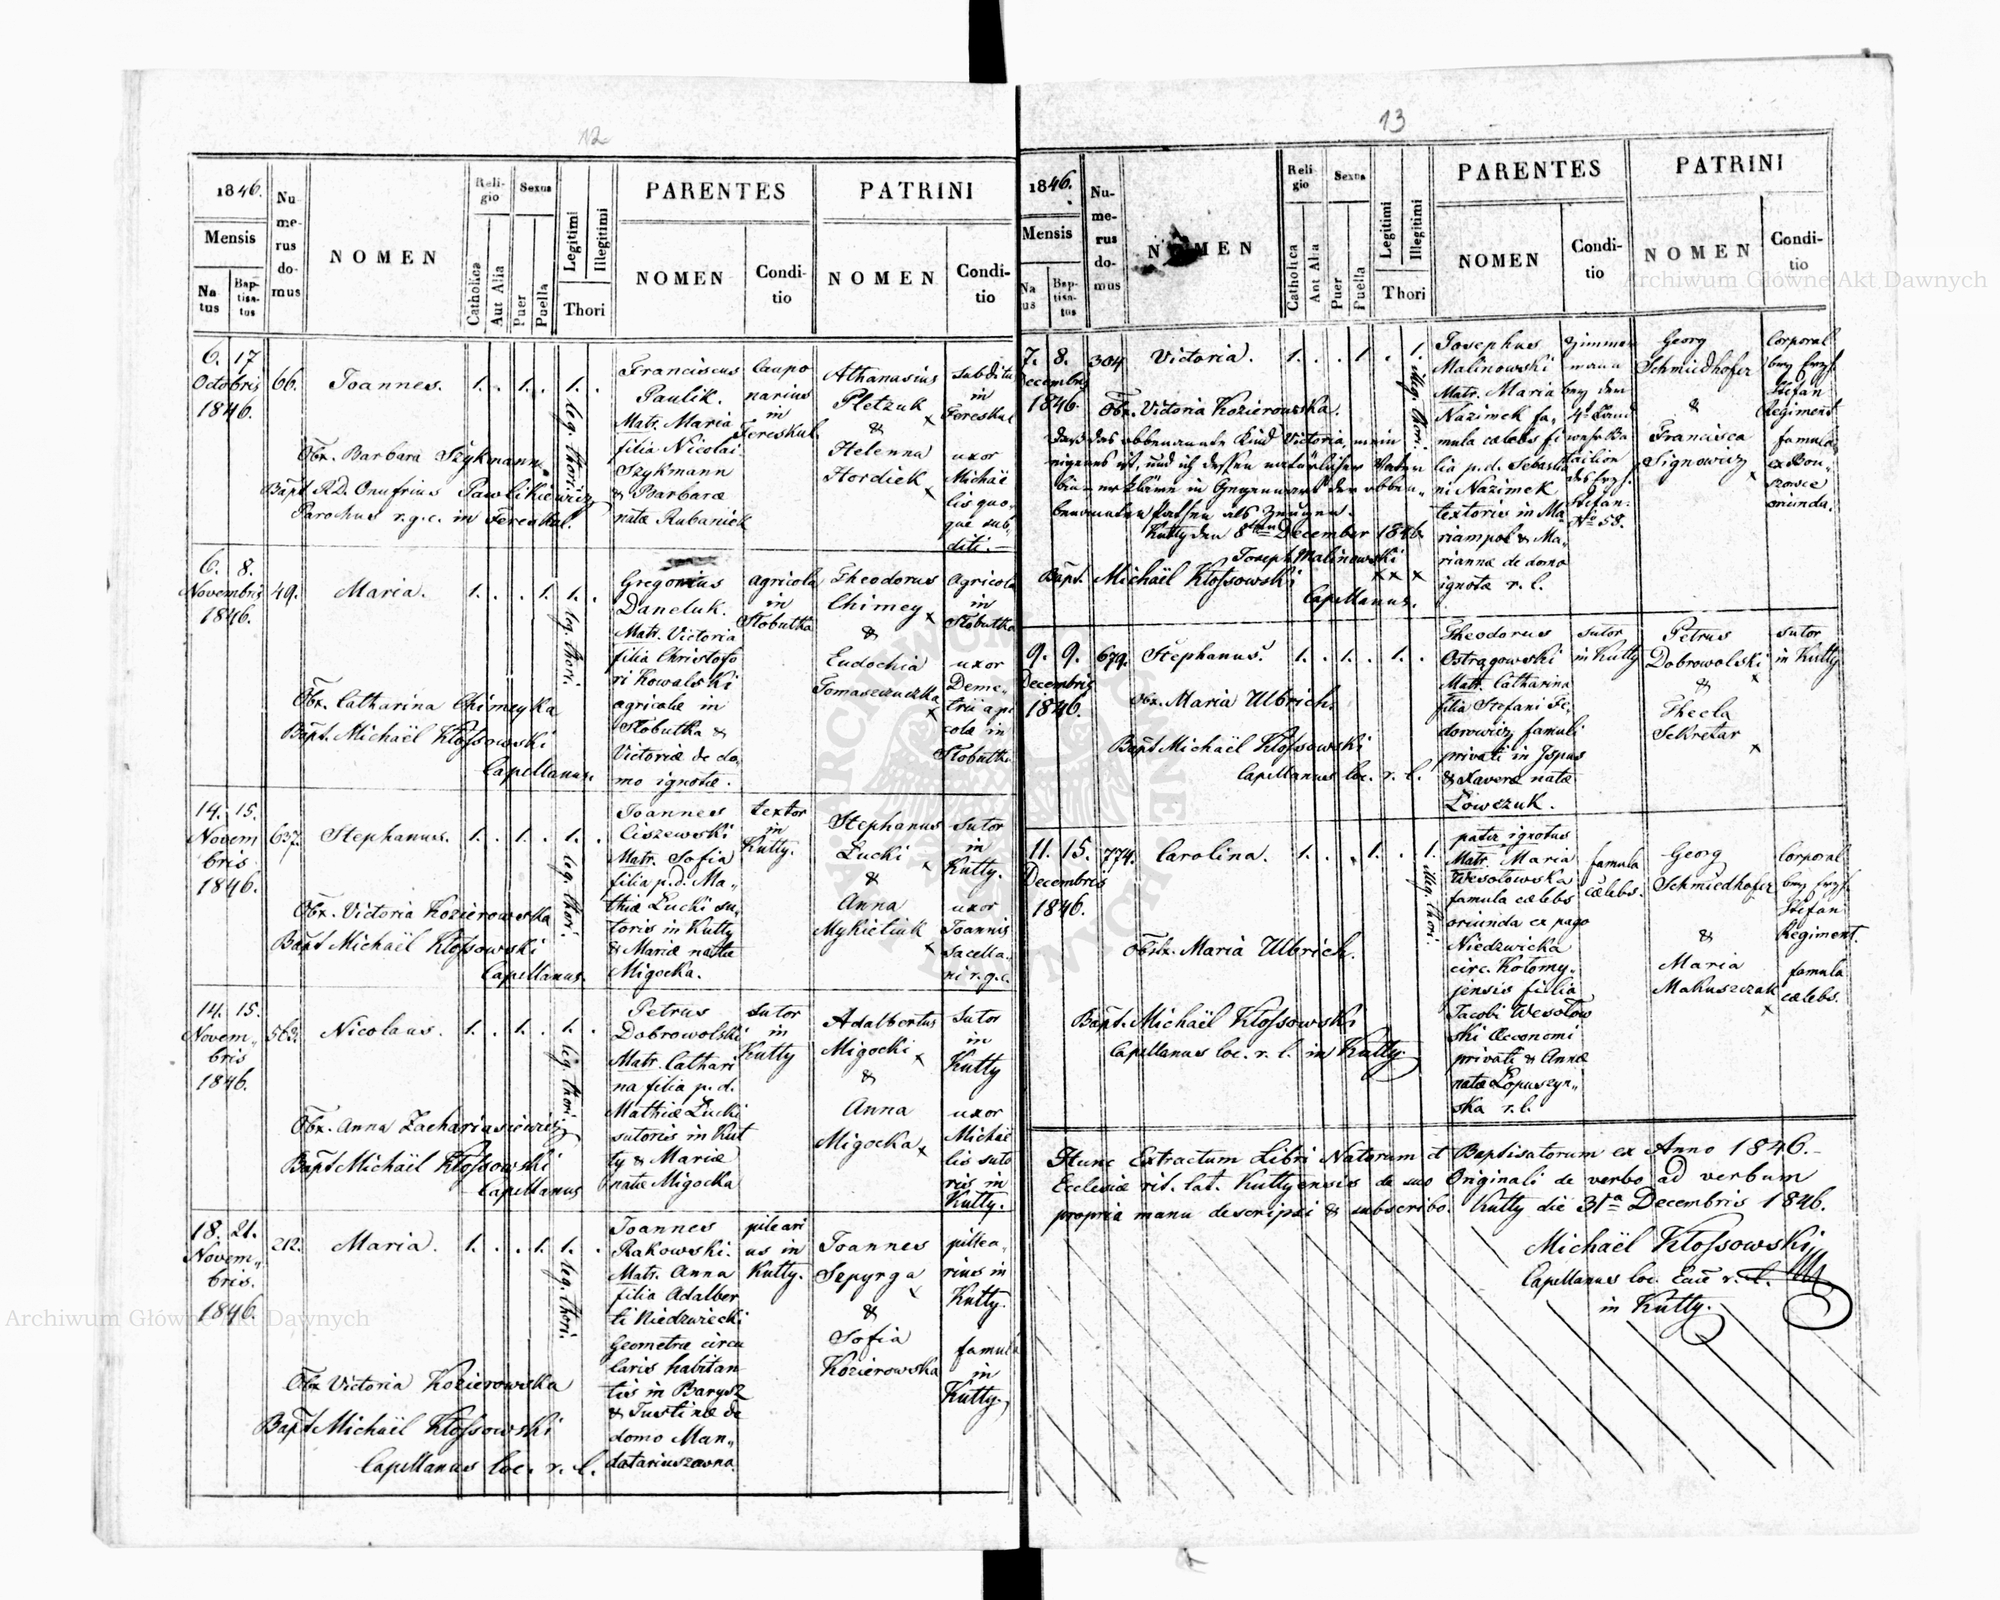 12
1846.
Mensis
Natus
Baptisatus
Numerus domus
NOMEN
Religio
Catholica
Aut Alia
Sexus
Puer
Puella
Legitimi
Illegitimi
Thori
PARENTES
NOMEN
Conditio
PATRINI
NOMEN
Conditio
6. 17
Octobris
1846.
66.
Joannes.
1. . 1. . 1. .
leg. thori.
Obx. Barbara Szykmann
Bapt. R.D. Onufrius Pawlikiewicz
Parochus r.g.c. in Fereskul.
Franciscus
Paulik.
Matr. Maria
filia Nicolai
Szykmann
& Barbaræ
natæ Rubaniek
Caupo
narius
in
Fereskul.
Athanasius
Pletzuk
x
&
Helenna
Hordiek
x
subditus
in
Fereskul
uxor
Michaë
lis quo-
que sub-
diti.
6. 8.
Novembris
1846.
49.
Maria.
1. . . 1. 1. .
leg. thori.
Obx. Catharina Chimeyka
Bapt. Michaël Kłossowski
Capellanus.
Gregorius
Daneluk.
Matr. Victoria
filia Christofo
ri Kowalski
agricolæ in
Słobutka &
Victoriæ de do-
mo ignotæ.
agricola
in
Słobutka
Theodorus
Chimey x
&
Eudochia
Tomaszczuczka
x
agricola
in
Słobutka
uxor
Deme-
trii agri
colæ in
Słobutka
14. 15.
Novem
bris
1846.
637.
Stephanus.
1. . 1. . 1. .
leg. thori.
Obx. Victoria Kozierowska
Bapt Michaël Kłossowski
Capellanus.
Joannes
Ciszewski
Matr. Sofia
filia p.d. Ma-
thiæ Łucki su-
toris in Kutty
& Mariæ natæ
Migocka.
textor
in
Kutty.
Stephanus
Łucki
x
&
Anna
Mykieliuk
x
sutor
in
Kutty.
uxor
Joannis
sacella-
ni r.g.c.
14. 15.
Novem-
bris
1846.
563.
Nicolaus.
1. . 1. . 1. .
leg. thori.
Obx. Anna Zachariasiewicz
Bapt Michaël Kłossowski
Capellanus
Petrus
Dobrowolski
Matr. Cathari
na filia p.d.
Mathiæ Łucki
sutoris in Kut
ty & Mariæ
natæ Migocka
sutor
in
Kutty
Adalbertus
Migocki
x
&
Anna
Migocka x
sutor
in
Kutty
uxor
Michaë
lis suto
ris in
Kutty.
18. 21.
Novem-
bris.
1846.
212.
Maria.
1. . . 1. 1. .
leg. thori.
Obx Victoria Kozierowska
Bapt Michaël Kłossowski
Capellanus loc. r. l.
Joannes
Rakowski.
Matr. Anna
filia Adalber
ti Niedzwiecki
Geometræ circu
laris habitan
tis in Barysz
& Justinæ de
domo Man-
datariuszowna.
pileari
us in
Kutty.
Joannes
Sepyrga
x
&
Sofia
Kozierowska
pilea-
rius in
Kutty.
famula
in
Kutty.
13
1846.
Mensis
Natus
Baptisatus
Numerus domus
NOMEN
Religio
Catholica
Aut Alia
Sexus
Puer
Puella
Legitimi
Illegitimi
Thori
PARENTES
NOMEN
Conditio
PATRINI
NOMEN
Conditio
7. 8.
Decembris
1846.
304
Victoria.
1. . . 1 . 1.
illeg. thori.
Obx. Victoria Kozierowska.
Daß das obbenannte Kind Victoria, mein
eigenes ist, und ich dessen natürlicher Vater
bin erkläre in Gegenwart der obben-
benannten Pathen als Zeugen.
Kutty den 8ten December 1846.
Joseph Malinowski
x x x
Bapt. Michaël Kłossowski
Capellanus.
Josephus
Malinowski
Matr. Maria
Nazimek fa-
mula cœlebs fi
lia p.d. Sebastia
ni Nazimek
textoris in Ma
riampol & Ma-
riannæ de domo
ignotæ r. l.
Zimmer
mann
bey dem
Georg
Schmiedhofer
&
Francisca
Signowicz
x
Corporal
bey Erzh.
Stefan
Regiment
famula
ex Bou-
szowce
oriunda.
9. 9.
Decembris
1846.
679.
Stephanus.
1. . 1. . 1. .
Obx. Maria Ulbrich.
Bapt Michaël Kłossowski
Capellanus loc. r. l.
Theodorus
Ostrągowski
Matr. Catharina
filia Stefani Fe-
dorowicz famuli
privati in Ispas
& Xaveræ natæ
Łowczuk.
sutor
in Kutty
Petrus
Dobrowolski
x
&
Thecla
Sekretar
x
sutor
in Kutty.
11. 15.
Decembris
1846.
774.
Carolina.
1. . . 1. . 1.
illeg. thori.
Obstx. Maria Ulbrich.
Bapt. Michaël Kłossowski
Capellanus loc. r. l. in Kutty.
pater ignotus
Matr. Maria
Wesołowska
famula cælebs
oriunda ex pago
Niedzwicka
circ. Kołomy-
jensis filia
Jacobi Wesołow
ski Œconomi
privati & Annæ
natæ Łopuszyn-
ska r. l.
famula
cælebs.
Georg
Schmiedhofer
&
Maria
Matuszczak
x
Corporal
bey Erzh.
Stefan
Regiment.
famula
cælebs.
Hunc Extractum Libri Natorum et Baptisatorum ex Anno 1846.
Ecclesiæ rit. lat. Kuttyensis de suo Originali de verbo ad verbum
propria manu descripsi & subscribo. Kutty die 31a Decembris 1846.
Michaël Kłossowski
Capellanus loc. Ecc̄æ r. l.
in Kutty.
Archiwum Główne Akt Dawnych
Archiwum Główne Akt Dawnych